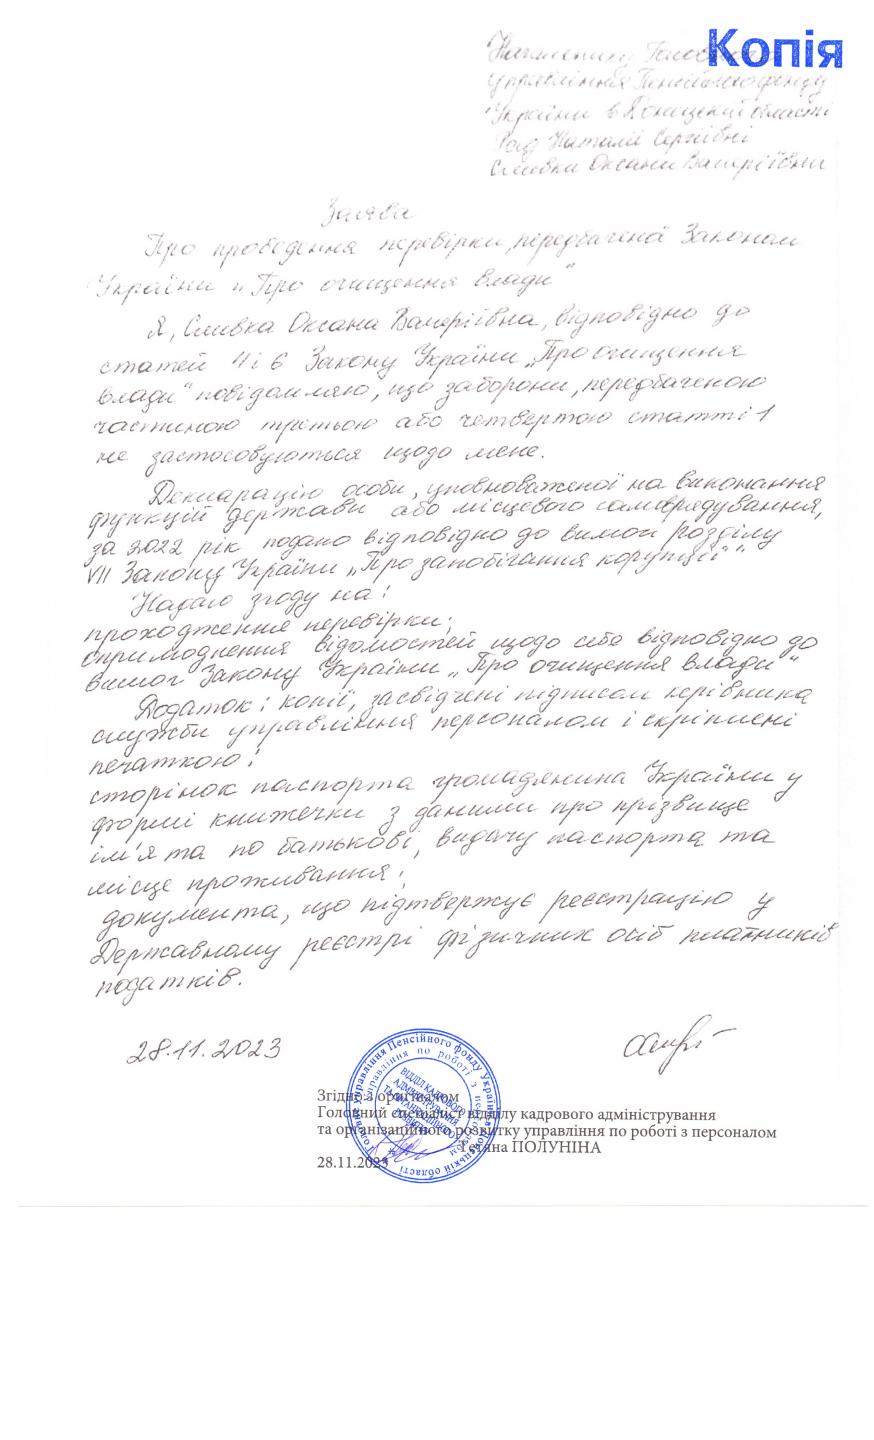 Копія
Начальнику Головного
управління Пенсійного фонду
України в Донецькій області
Рад Наталії Сергіївні
Сливки Оксани Валеріївни
Заява
Про проведення перевірки, передбаченої Законом
України „Про очищення влади"
Я, Сливка Оксана Валеріївна, відповідно до
статей 4 і 6 Закону України „Про очищення
влади" повідомляю, що заборони, передбаченою
частиною третьою або четвертою статті 1
не застосовуються щодо мене.
Декларацію особи, уповноваженої на виконання
функцій держави або місцевого самоврядування,
за 2022 рік подано відповідно до вимог розділу
VII Закону України „Про запобігання корупції"
Надаю згоду на:
проходження перевірки;
оприлюднення відомостей щодо себе відповідно до
вимог Закону України „Про очищення влади"
Додаток: копії, засвідчені підписом керівника
служби управління персоналом і скріплені
печаткою:
сторінок паспорта громадянина України у
формі книжечки з даними про прізвище
ім'я та по батькові, видачу паспорта та
місце проживання;
документа, що підтверджує реєстрацію у
Державному реєстрі фізичних осіб платників
податків.
28.11.2023
Головне управління Пенсійного фонду України в Донецькій області
управління по роботі з персоналом
ВІДДІЛ КАДРОВОГО
АДМІНІСТРУВАННЯ
ТА ОРГАНІЗАЦІЙНОГО
РОЗВИТКУ
Згідно з оригіналом
Головний спеціаліст відділу кадрового адміністрування
та організаційного розвитку управління по роботі з персоналом
Тетяна ПОЛУНІНА
28.11.2023